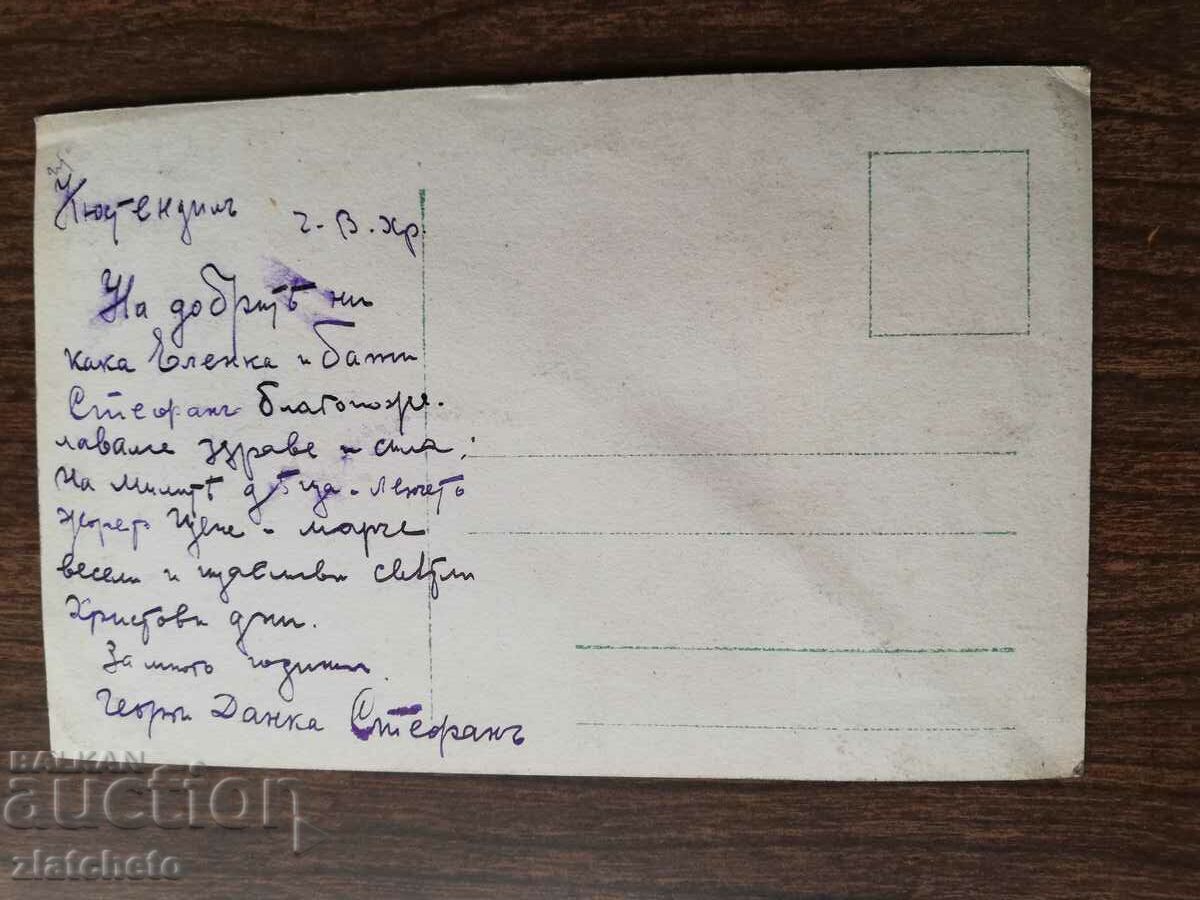 Кюстендилъ ч. В. Хр.
На добритѣ ни
кака Еленка и бати
Стефанъ благопоже-
лаваме здраве и сила;
На милитѣ дѣца - Ленчето
Цене - марче
весели и щастливи светли
Христови дни.
За много години
Георги Данка Стефанъ
BALKAN
auction
zlatcheto